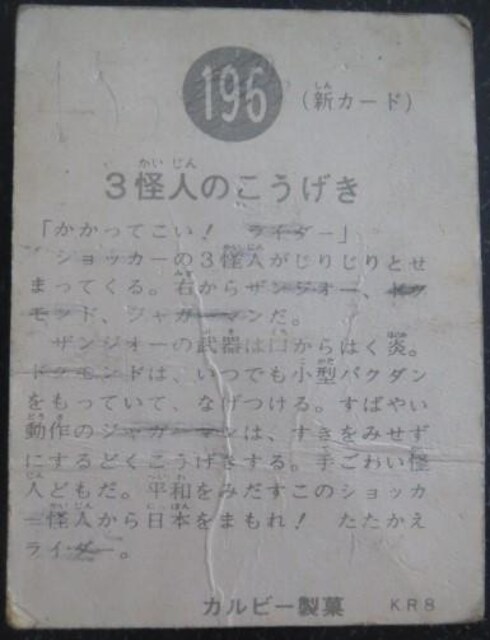 196
(新カード)
3怪人のこうげき
「かかってこい! ライダー」
ショッカーの3怪人がじりじりとせ
まってくる。右からザンジオー、ドク
モンド、ジャガーマンだ。
ザンジオーの武器は口からはく炎。
ドクモンドは、いつでも小型バクダン
をもっていて、なげつける。すばやい
動作のジャガーマンは、すきをみせず
にするどくこうげきする。手ごわい怪
人どもだ。平和をみだすこのショッカ
ー怪人から日本をまもれ! たたかえ
ライダー。
カルビー製菓 KR8